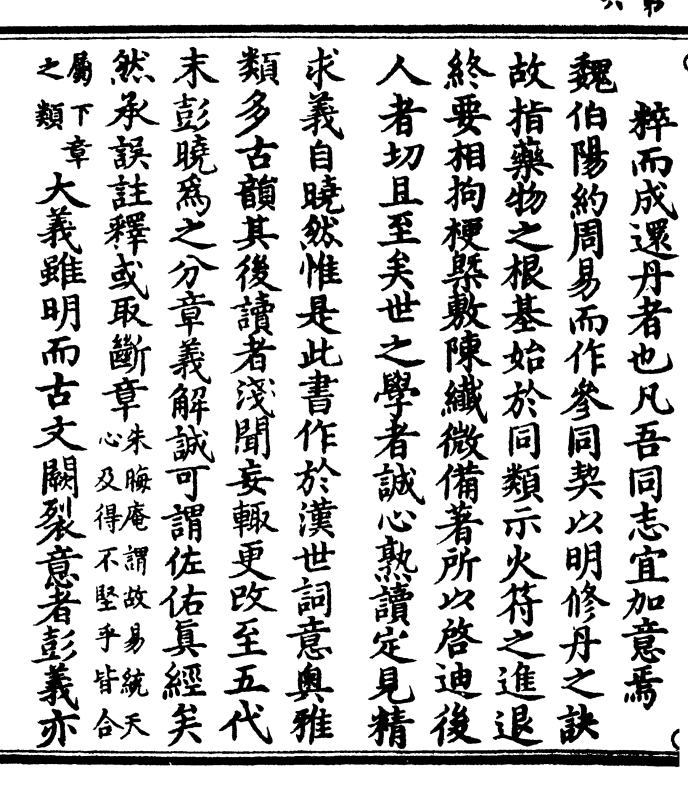 粹而成還丹者也凡吾同志宜加意焉
魏伯陽約周易而作參同契以明修丹之訣
故指藥物之根基始於同類示火符之進退
終要相拘梗槩敷陳纖微備著所以啓迪後
人者切且至矣世之學者誠心熟讀定見精
求義自曉然惟是此書作於漢世詞意奧雅
類多古韻其後讀者淺聞妄輙更改至五代
末彭曉爲之分章義解誠可謂佐佑眞經矣
然承誤註釋或取斷章朱晦庵謂故易統天心及得不堅乎皆合
屬下章之類大義雖明而古文闕裂意者彭義亦